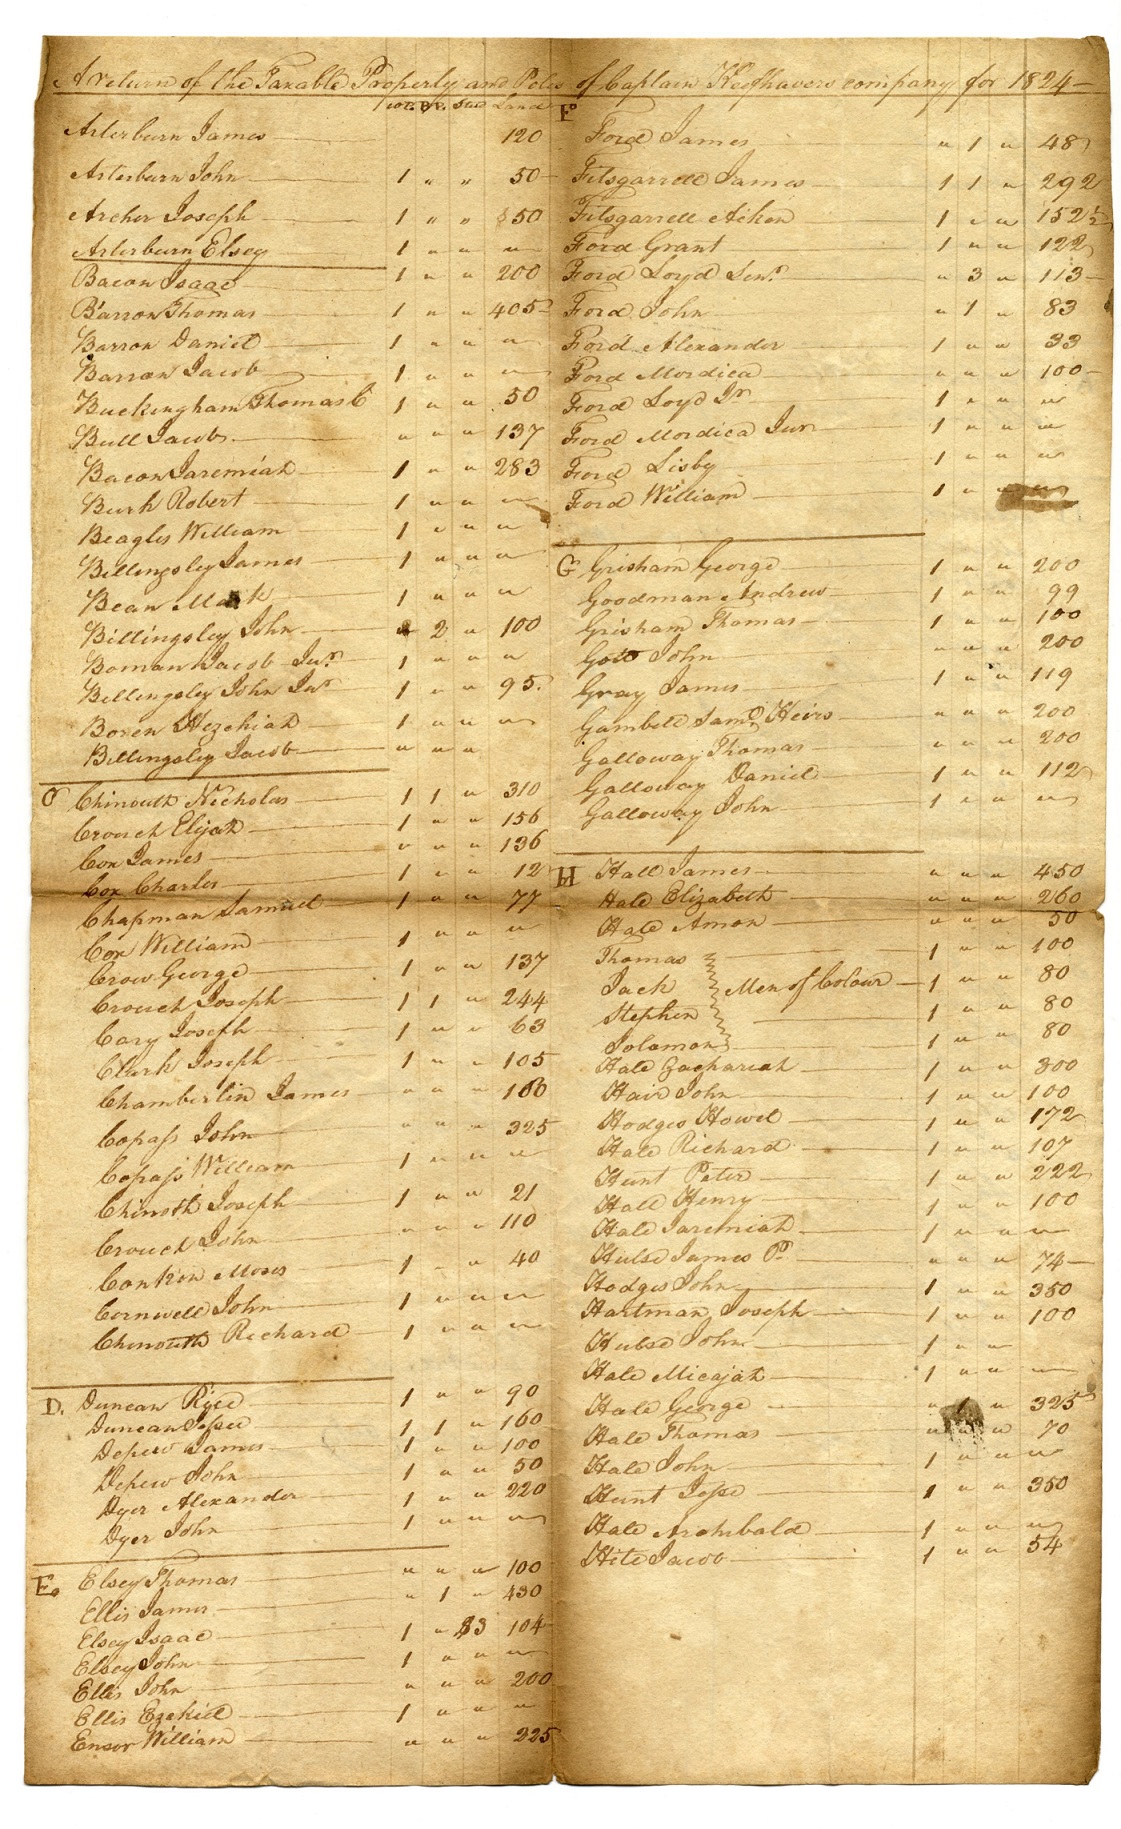 A return of the Taxable Property and Poles of Captain Keefhavers company for 1824
W.P. B.P. Stud Land
Arterburn James 120
Arterburn John 1 " " 50
Archer Joseph 1 " " 50
Arterburn Elsey 1 " " "
Bacon Isaac 1 " " 200
Barron Thomas 1 " " 405
Barron Daniel 1 " " "
Barron Jacob 1 " " "
Buckingham Thomas C 1 " " 50
Bull Jacob " " " 137
Bacon Jaremiah 1 " " 283
Burk Robert 1 " " "
Beagles William 1 " " "
Billingsley James 1 " " "
Bean Mark 1 " " "
Billingsley John 2 " 100
Boman Jacob Junr 1 " " "
Billingsley John Junr 1 " " 95
Boren Hezekiah 1 " " "
Billingsley Jacob " " "
C Chinouth Nicholas 1 1 " 310
Crouch Elijah 1 " " 156
Cox James " " " 136
Cox Charles 1 " " 12
Chapman Samuel 1 " " 77
Cox William 1 " " "
Crow George 1 " " 137
Crouch Joseph 1 1 " 244
Cary Joseph 1 " " 63
Clark Joseph 1 " " 105
Chamberlin James " " " 100
Copass John " " " 325
Copass William 1 " " "
Chinoth Joseph 1 " " 21
Crouch John " " " 110
Conkin Moses 1 " " 40
Cornwell John 1 " " "
Chinouth Richard 1 " " "
D. Duncan Rice 1 " " 90
Duncan Jesse 1 1 " 160
Depew James 1 " " 100
Depew John 1 " " 50
Dyer Alexander 1 " " 220
Dyer John 1 " " "
E. Elsey Thomas " " " 100
Ellis James " 1 " 430
Elsey Isaac 1 " $3 104
Elsey John 1 " " "
Ellis John " " " 200
Ellis Ezekiel 1 " " "
Ensor William " " " 225
F. Ford James " 1 " 48
Fitsgarrell James 1 1 " 292
Fitsgarrell Aiken 1 " " 152½
Ford Grant 1 " " 122
Ford Loyd Senr " 3 " 113
Ford John " 1 " 83
Ford Alexander 1 " " 33
Ford Mordica " " " 100
Ford Loyd Jr 1 " " "
Ford Mordica Jun 1 " " "
Ford Lisby 1 " " "
Ford William 1 " " "
G Grisham George 1 " " 200
Goodman Andrew 1 " " 99
Grisham Thomas 1 " " 100
John " " " 200
Gray James 1 " " 119
Gambell Saml Heirs " " " 200
Galloway Thomas " " " 200
Galloway Daniel 1 " " 112
Galloway John 1 " " "
H Hall James " " " 450
Hale Elizabeth " " " 260
Hale Amon " " " 50
Thomas 1 " " 100
Jack Men of Colour 1 " " 80
Stephen 1 " " 80
Solomon 1 " " 80
Hale Zachariah 1 " " 300
Hair John 1 " " 100
Hodges Howel 1 " " 172
Hale Richard 1 " " 107
Hunt Peter 1 " " 222
Hale Henry 1 " " 100
Hale Jaremiah 1 " " "
Hulse James P " " " 74
Hodges John 1 " " 350
Hartman Joseph 1 " " 100
Hulse John 1 " "
Hale Micajah 1 " " "
Hale George " 1 " 325
Hale Thomas " " " 70
Hale John 1 " " "
Hunt Jesse 1 " " 350
Hale Archibald 1 " " "
Hite Jacob 1 " " 54